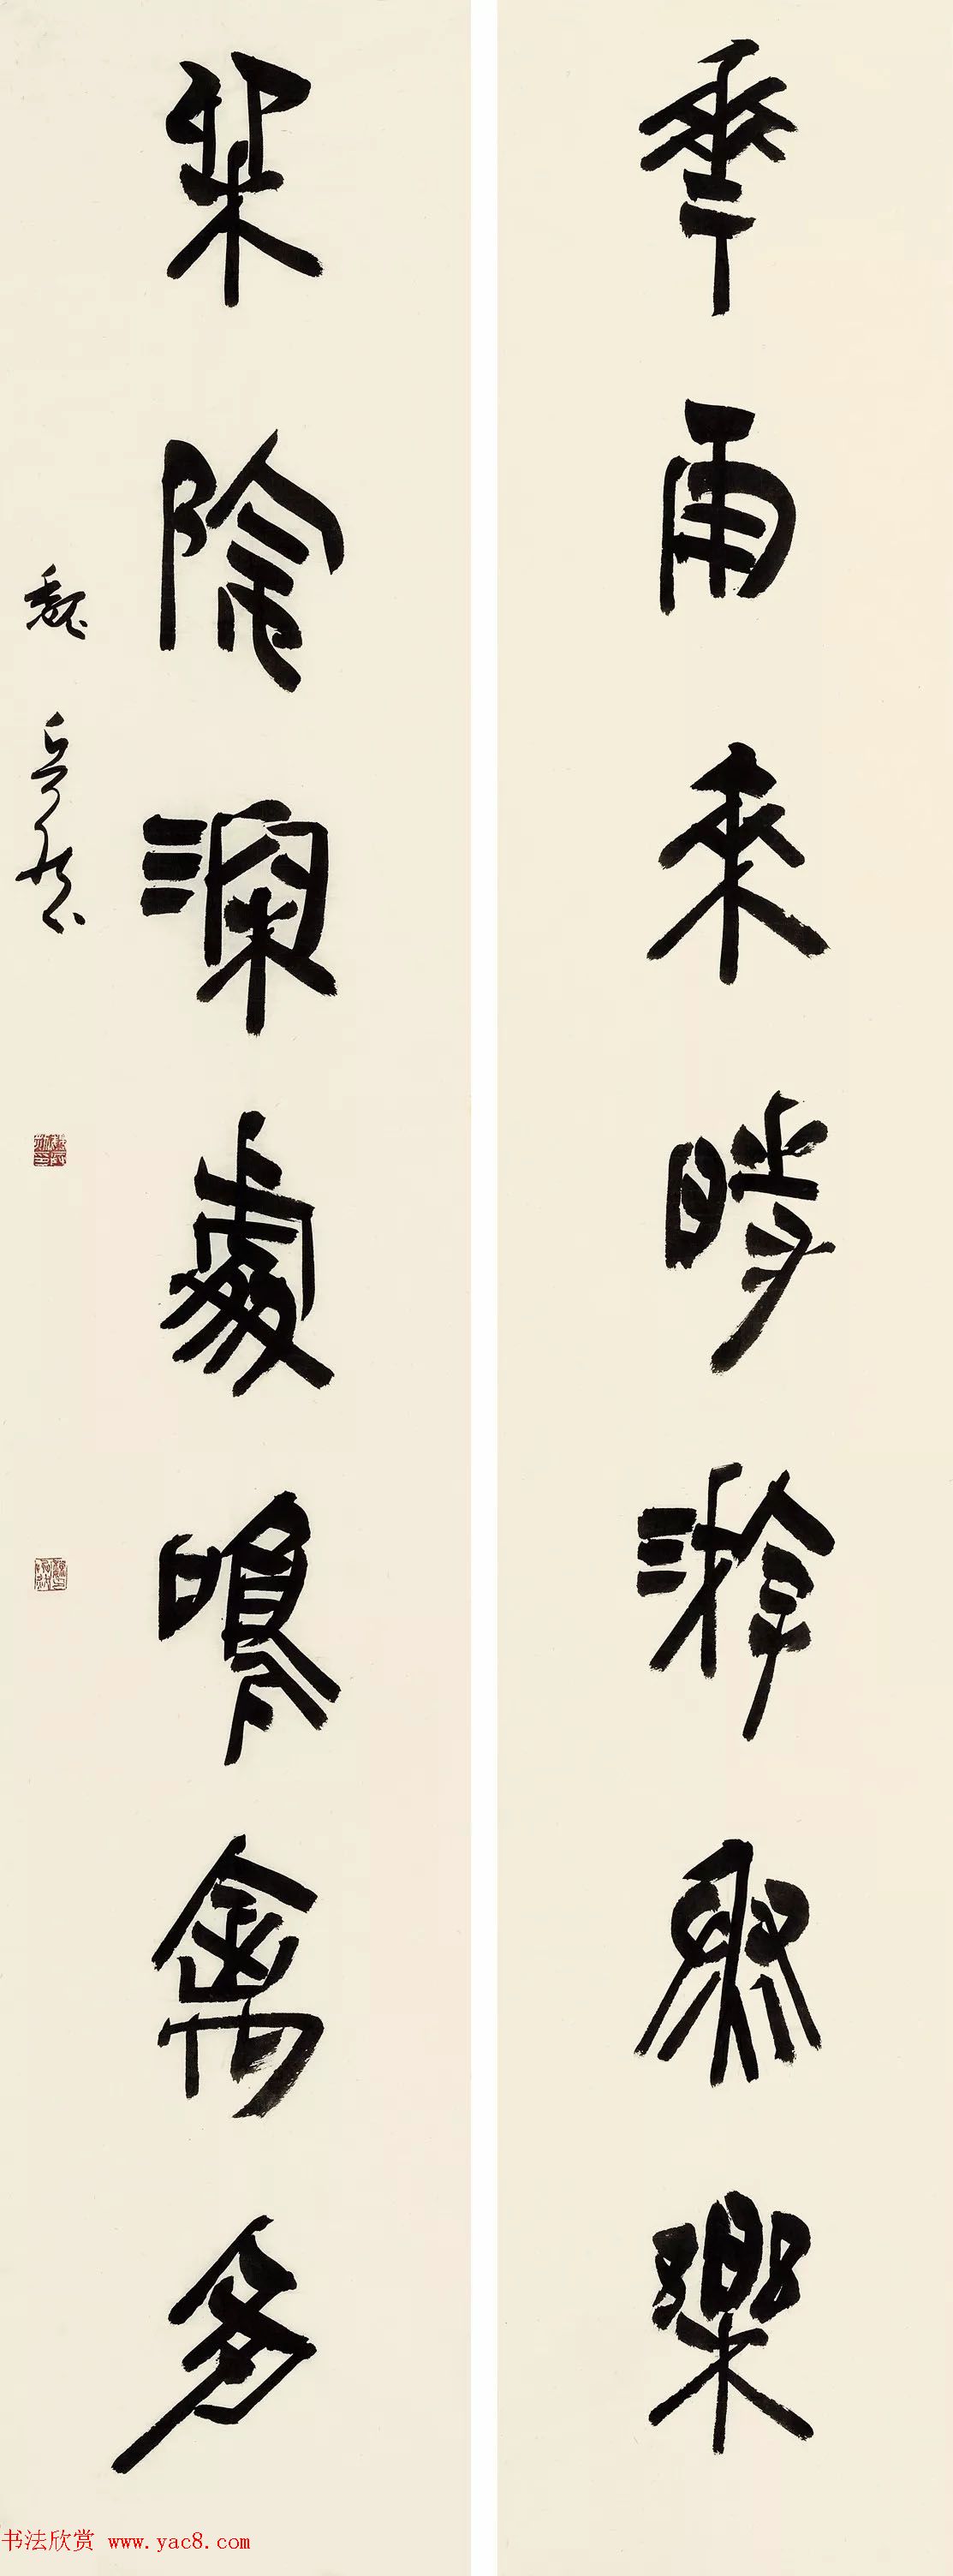 華雨來時游衆樂
柳陰深處鳴禽多
魏
书法欣赏 www.yac8.com